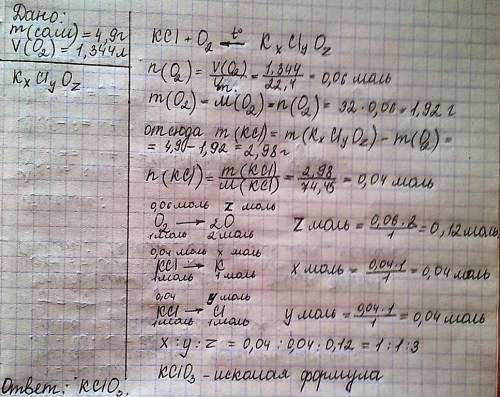 Дано:
m(соли) = 4,9г
V(O₂) = 1,344л
KₓClᵧO_z
KCl + O₂ ←t° KₓClᵧO_z
n(O₂) = V(O₂)/Vm. = 1,344/22,4 = 0,06 моль
m(O₂) = M(O₂) · n(O₂) = 32 · 0,06 = 1,92 г
отсюда m(KCl) = m(KₓClᵧO_z) − m(O₂) =
= 4,90 − 1,92 = 2,98г
n(KCl) = m(KCl)/M(KCl) = 2,98/74,45 = 0,04 моль
0,06 моль z моль
O₂ → 2O z моль = 0,06·2/1 = 0,12 моль
1 моль 2 моль
0,04 моль x моль
KCl → K x моль = 0,04·1/1 = 0,04 моль
1 моль 1 моль
0,04 y моль
KCl → Cl y моль = 0,04·1/1 = 0,04 моль
1 моль 1 моль
x : y : z = 0,04 : 0,04 : 0,12 = 1 : 1 : 3
KClO₃ - искомая формула
Ответ: KClO₃.